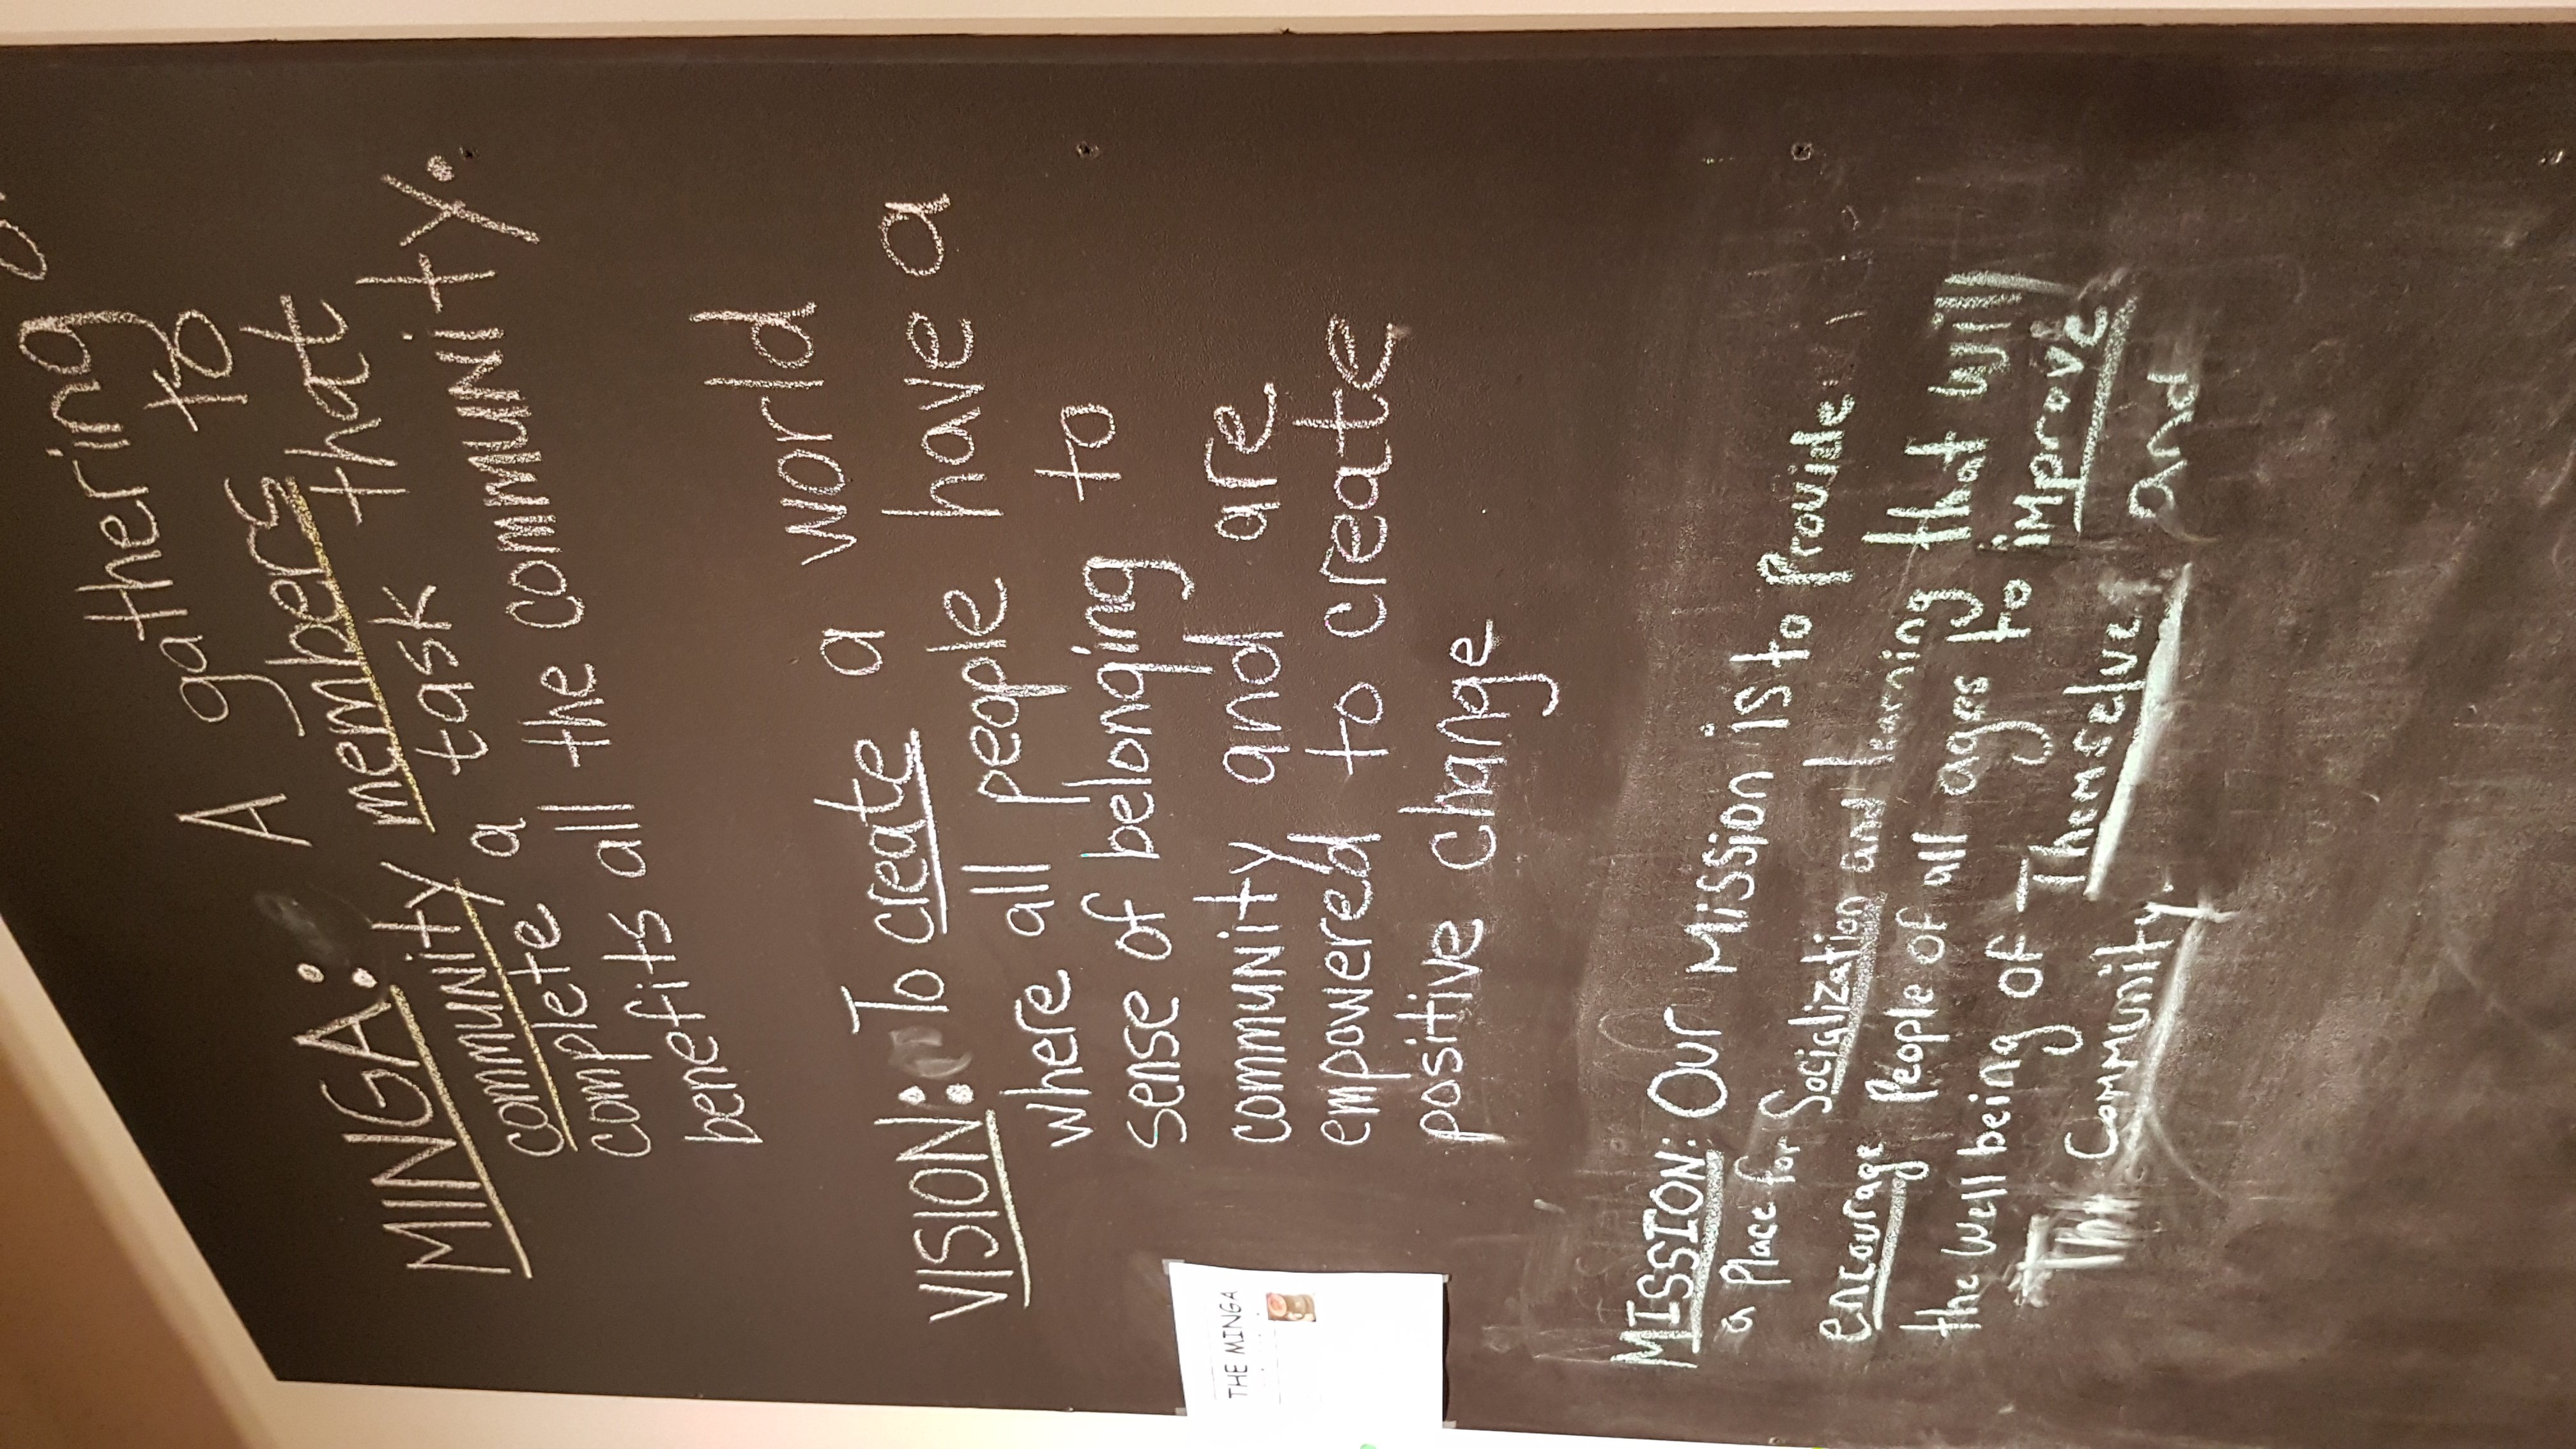 MINGA: A gathering
community members to
complete a task that
complete
benefits all the community.
VISION: To create a world
where all people have a
sense of belonging to
community and are
empowered to create
positive change
MISSION: Our Mission is to Provide
a Place for Socialization and learning that will
encourage People of all ages to improve
the Well being of Themselve and
The Community.
THE MINGA